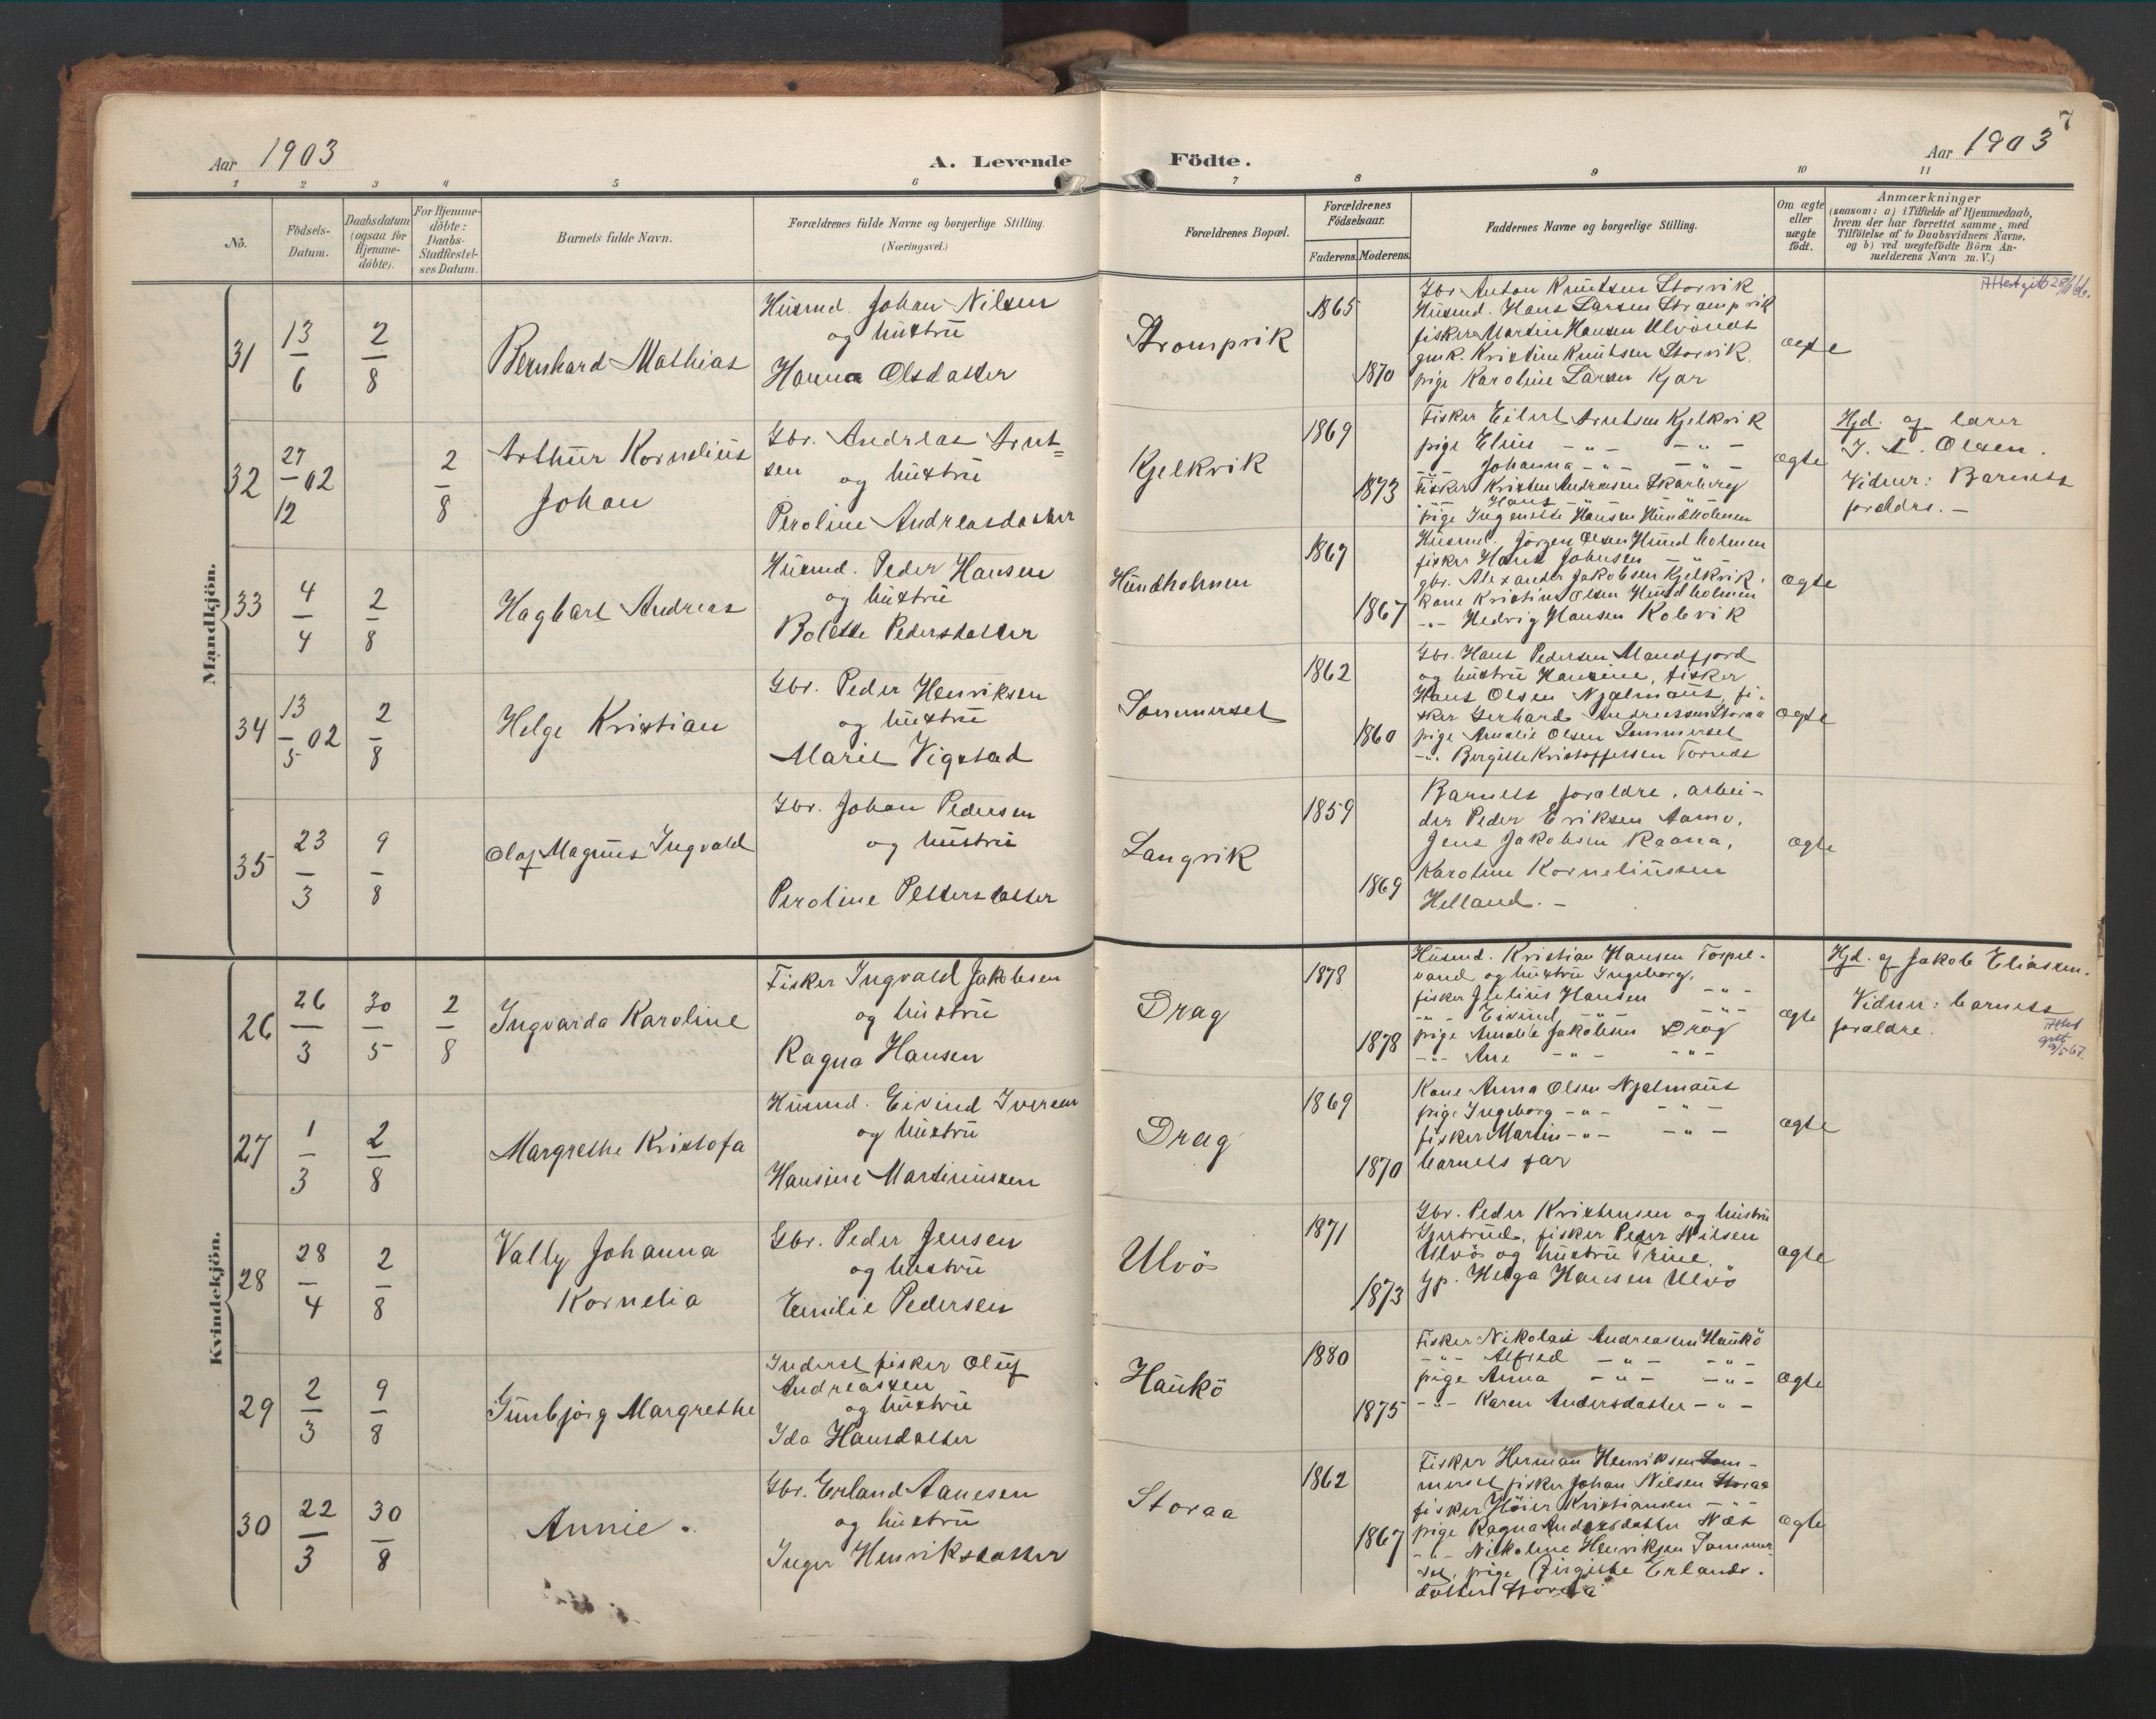 7
Aar 1903
A. Levende
Födte.
Aar 1903
1 2 3 4 5 6 7 8 9 10 11
Nô.
Födsels-
Datum.
Daabsdatum
(ogsaa for
Hjemme-
döbte).
For Hjemme-
döbte:
Daabs-
Stadfæstel-
ses Datum.
Barnets fulde Navn.
Forældrenes fulde Navne og borgerlige Stilling.
(Næringsvei.)
Forældrenes Bopæl.
Forældrenes
Födselsaar.
Faderens. Moderens.
Faddernes Navne og borgerlige Stilling.
Om ægte
eller
uægte
födt.
Anmærkninger
(saasom: a) i Tilfælde af Hjemmedaab,
hvem der har forrettet samme, med
Tilföielse af to Daabsvidners Navne,
og b) ved uægtefödte Börn An-
melderens Navn m. V.)
Mandkjön.
31
13
6
2
8
Bernhard Mathias
Husmd. Johan Nilsen
og hustru
Hanna Olsdatter
Strompvik
1865
1870
Gbr. Anton Knutsen Storvik
Husmd. Hans Larsen Strompvik
fisker Martin Hansen Ulvönæs
gmk. Kristine Knutsen Storvik
pige Karoline Larsen Kjær
ægte
32
27
02
12
2
8
Arthur Kornelius
Johan
Gbr. Andreas Arnt=
sen og hustru
Peroline Andreasdatter
Kjelkvik
1869
1873
Fisker Eilert Arntsen Kjelkvik
pige Elise -"- -"-
-"- Johanna -"- -"-
Fisker Kristen Andreasen Skarberg
-"- Hans -"- -"-
pige Ingenette Hansen Hundholmen
ægte
Hjd. af lærer
J. A. Olsen.
Vidner: Barnets
forældre. -
33
4
4
2
8
Hagbart Andreas
Husmd. Peder Hansen
og hustru
Bolette Pedersdatter
Hundholmen
1867
1867
Husmd. Jörgen Olsen Hundholmen
fisker Hans Johnsen -"-
gbr. Alexander Jakobsen Kjelkvik.
kone Kristine Olsen Hundholmen
-"- Hedvig Hansen Kobvik
ægte
34
13
02
5
2
8
Helge Kristian
Gbr. Peder Henriksen
og hustru
Marie Vigstad
Sommerset
1862
1860
Gbr. Hans Pedersen Mandfjord
og hustru Hansine, fisker
Hans Olsen Njalmaus, fi-
sker Gerhard Andreassen Storaa
pige Amalie Olsen Sommerset
-"- Bergitte Kristoffersen Tornæs
ægte
35
23
3
9
8
Olaf Magnus Ingvald
Gbr. Johan Pedersen
og hustru
Peroline Pettersdatter
Langvik
1859
1869
Barnets forældre, arbei-
der Peder Eriksen Aamo,
Jens Jakobsen Raana,
Karoline Korneliussen
Helland. -
ægte
Kvindekjön.
26
26
3
30
5
2
8
Ingvarda Karoline
Fisker Ingvald Jakobsen
og hustru
Ragna Hansen
Drag
1878
1878
Husmd. Kristian Hansen Torpel-
vand og hustru Ingeborg,
fisker Julius Hansen -"-
-"- Eivind -"- -"-
pige Amalie Jakobsen Drag
-"- Ane -"- -"-
ægte
Hjd. af Jakob Eliassen.
Vidner: barnets
forældre.
27
1
3
2
8
Margrethe Kristofa
Husmd. Eivind Iversen
og hustru
Hansine Martinussen
Drag
1869
1870
Kone Anna Olsen Njalmaus
pige Ingeborg -"- -"-
fisker Martin -"- -"-
barnets far
ægte
28
28
4
2
8
Vally Johanna
Kornelia
Gbr. Peder Jensen
og hustru
Emilie Pedersen
Ulvö
1871
1873
Gbr. Peder Kristensen og hustru
Gjertrud, fisker Peder Nilsen
Ulvö og hustru Trine,
Gp. Helga Hansen Ulvö
ægte
29
2
3
9
8
Gunbjörg Margrethe
Inderst fisker Oluf
Andreassen
og hustru
Ida Hansdatter
Haukö
1880
1875
Fisker Nikolai Andreassen Haukö
-"- Alfred -"- -"-
pige Anna -"- -"-
-"- Karen Andersdatter -"-
ægte
30
22
3
30
8
Annie.
Gbr. Erland Aanesen
og hustru
Inger Henriksdatter
Storaa
1862
1867
Fisker Herman Henriksen Som-
merset fisker Johan Nilsen Storaa
fisker Höier Kristiansen -"-
pige Ragna Andersdatter Næs
-"- Nikoline Henriksen Sommer-
set, pige Birgitte Erlands-
datter Storaa
ægte